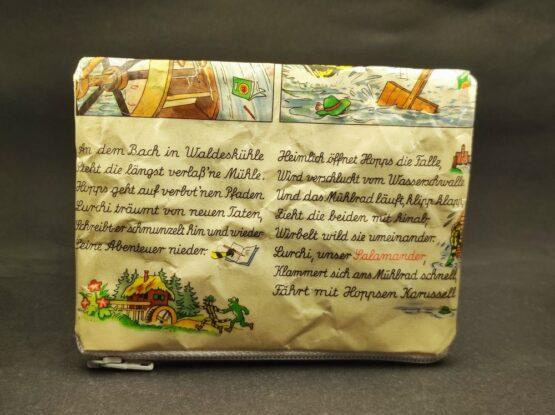 An dem Bach in Waldeskühle
Steht die längst verlaß'ne Mühle.
Hopps geht auf verbot'nen Pfaden.
Lurchi träumt von neuen Taten,
Schreibt er schmunzelt hin und wieder
Seine Abenteuer nieder.
Heimlich öffnet Hopps die Falle,
Wird verschluckt vom Wasserschwalle
Und das Mühlrad läuft, klipp klapp,
Zieht die beiden mit hinab,
Wirbelt wild sie umeinander.
Lurchi, unser Salamander,
Klammert sich ans Mühlrad schnell,
Fährt mit Hoppsen Karussell